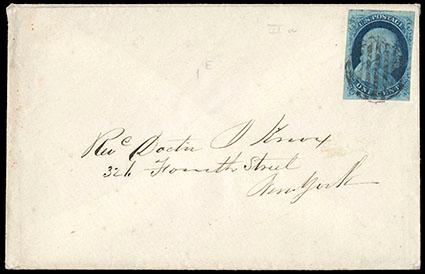 II a
1 E
U.S. POSTAGE
ONE CENT
Revᵈ Doctor D Knox
326 Fourth Street
New York